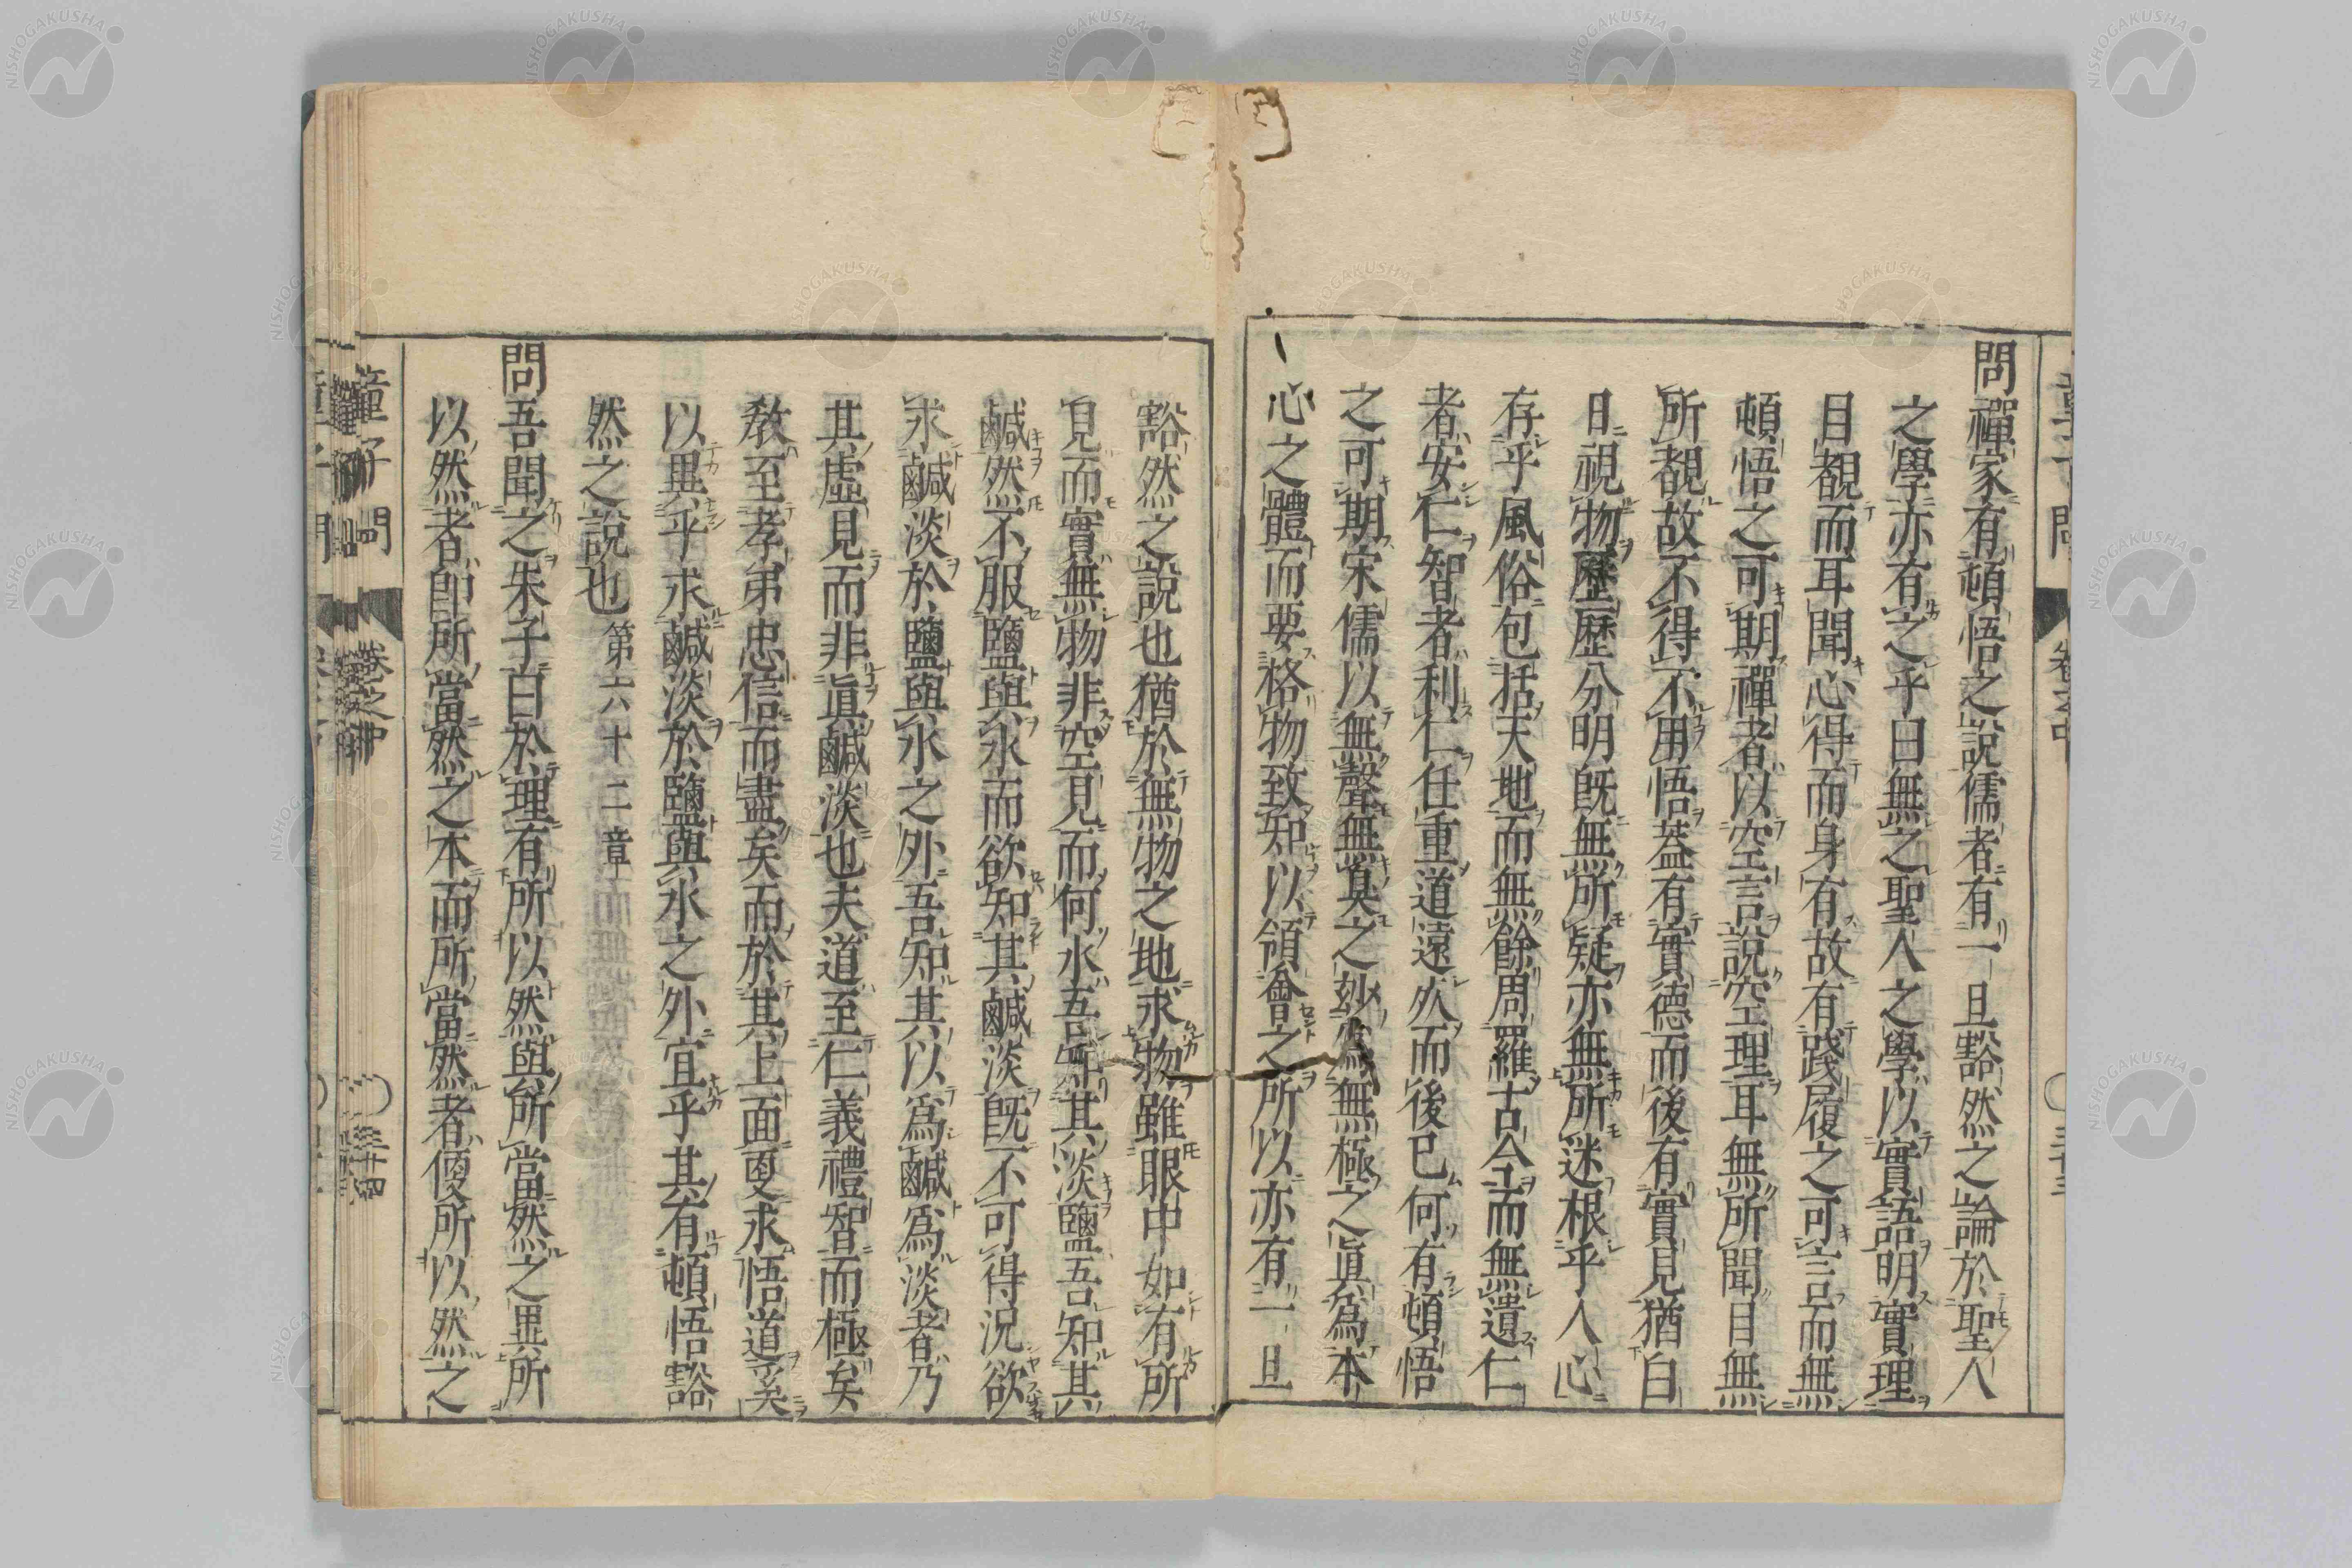 問禪家有頓悟之說儒者有一旦豁然之論於聖人
之學亦有之乎曰無之聖人之學以實語明實理
目覩而耳聞心得而身有故有踐履之可言而無
頓悟之可期禪者以空言說空理耳無所聞目無
所覩故不得不用悟蓋有實德而後有實見猶白
日視物歷歷分明既無所疑亦無所迷根乎人心
存乎風俗包括天地而無餘周羅古今而無遺仁
者安仁智者利仁任重道遠久而後已何有頓悟
之可期宋儒以無聲無臭之玅爲無極之眞爲本
心之體而要格物致知以領會之所以亦有一旦
豁然之說也猶於無物之地求物雖眼中如有所
見而實無物非空見而何水吾知其淡鹽吾知其
鹹然不服鹽與水而欲知其鹹淡既不可得況欲
求鹹淡於鹽與水之外吾知其以爲鹹爲淡者乃
其虛見而非眞鹹淡也夫道至仁義禮智而極矣
教至孝弟忠信而盡矣而於其上面更求悟道奚
以異乎求鹹淡於鹽與水之外宜乎其有頓悟豁
然之說也 第六十二章
問吾聞之朱子曰於理有所以然與所當然之異所
以然者卽所當然之本而所當然者便所以然之
童子問 卷之中 三十四
NISHOGAKUSHA